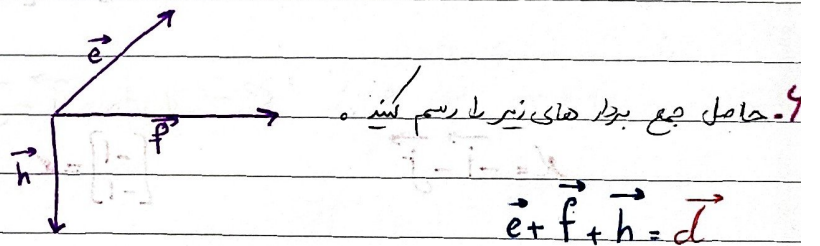 e⃗
۶. حاصل جمع بردار های زیر را رسم کنید.
f⃗
h⃗
e⃗ + f⃗ + h⃗ = d⃗